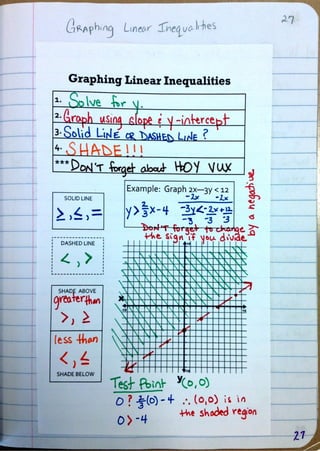 GRAPhing Linear Inequalities
27
Graphing Linear Inequalities
1. Solve for y.
2. Graph using slope & y-intercept
3. Solid LiNE OR DASHED LiNE ?
4. SHADE!!!
*** DON'T forget about HOY VUX
SOLID LINE
≥, ≤, =
DASHED LINE
<, >
SHADE ABOVE
greater than
>, ≥
less than
<, ≤
SHADE BELOW
Example: Graph 2x—3y < 12
-2x -2x
y > 2/3 x - 4
-3y < -2x + 12
-3 -3 -3
DON'T forget to change
the sign if you divide
by a negative
x
y
Test Point (0,0)
0 ? 2/3 (0) - 4 ∴ (0,0) is in
the shaded region
0 > -4
27